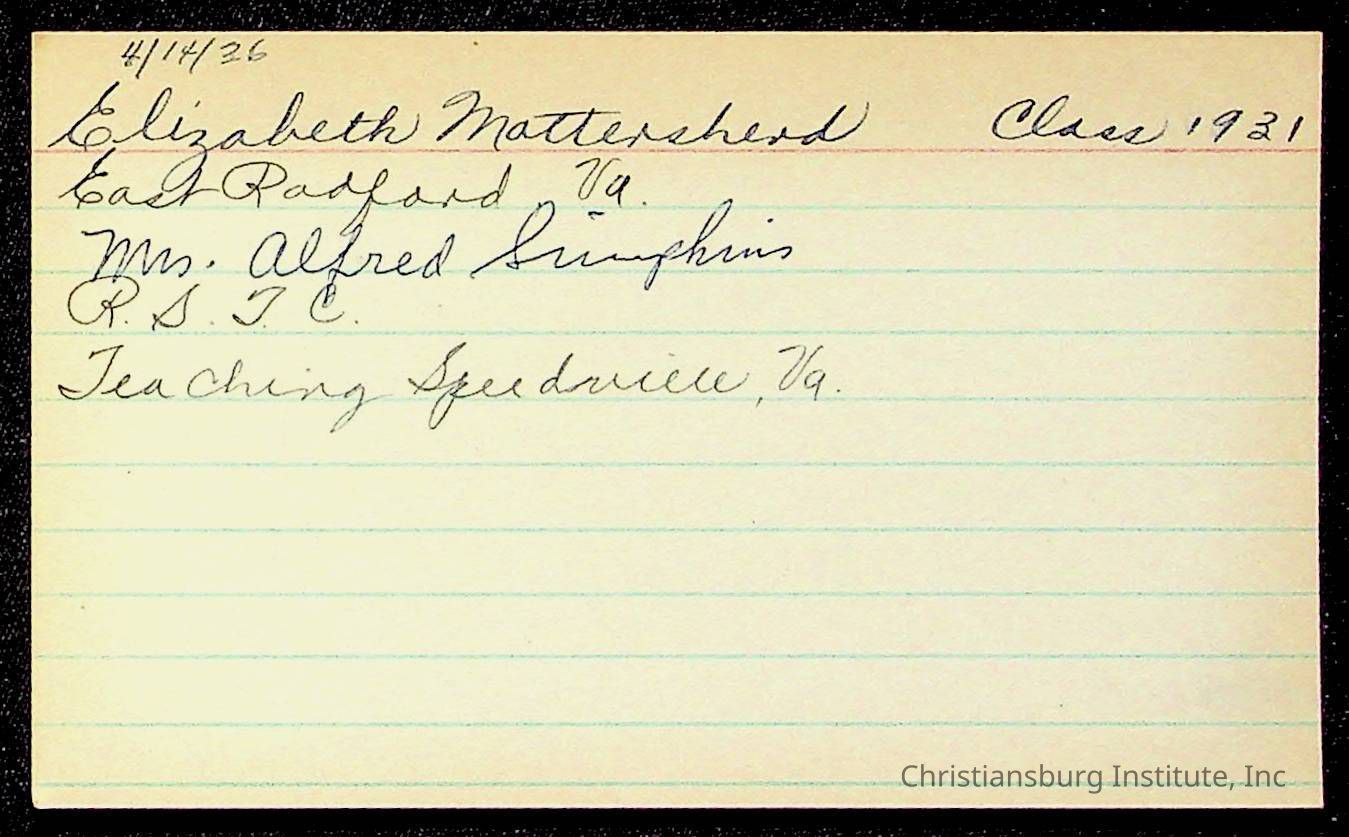 4/14/36
Elizabeth Mattershead Class 1931
East Radford, Va.
Mrs. Alfred Simpkins
R. S. T. C.
Teaching Speedwell, Va.
Christiansburg Institute, Inc